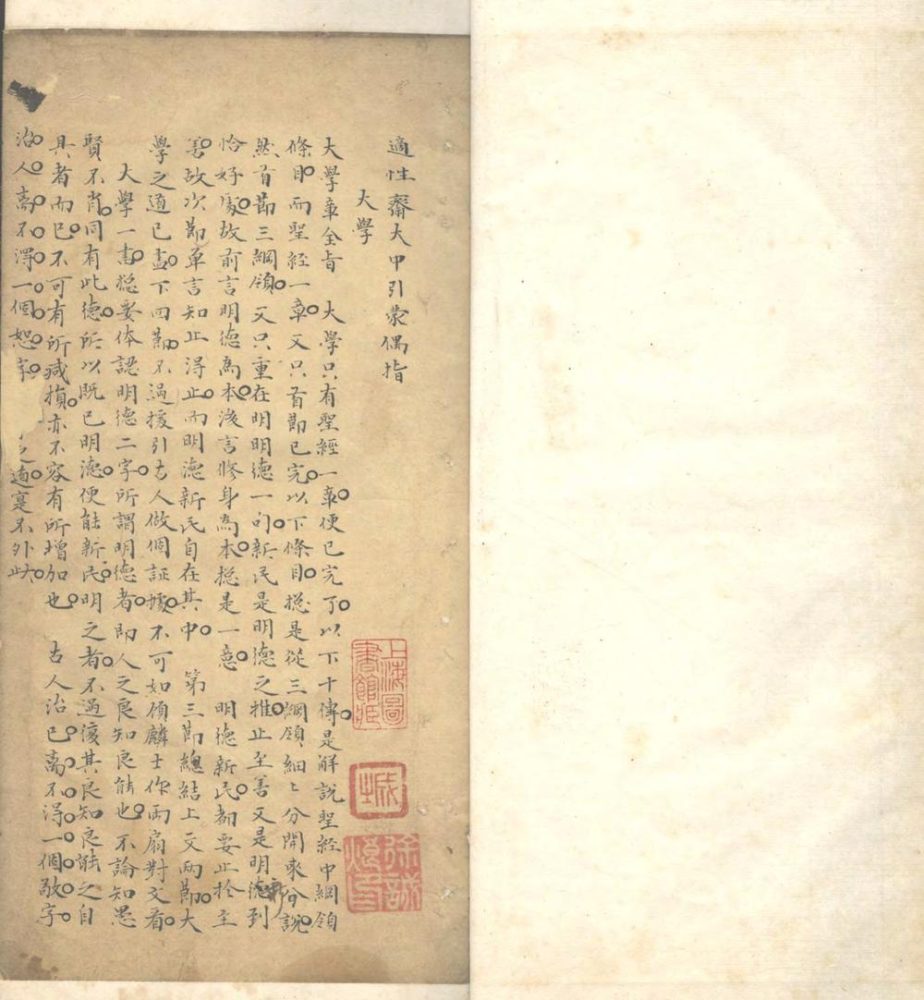 適性齋大中引蒙偶指
大學
大學章全旨　大學只有聖經一章便已完了以下十傳是解說聖經中綱領
條目而聖經一章又只首節已完以下條目揔是從三綱領細〻分開來分說
然首節三綱領又只重在明明德一句新民是明德之推止至善又是明德到
恰好處故前言明德為本後言修身為本揔是一意　明德新民都要止於至
善故次節單言知止得止而明德新民自在其中　第三節總結上文兩節大
學之道已盡下四節不過援引古人做個証據不可如顧麟士作兩扇對文看
大學一書揔要体認明德二字所謂明德者即人之良知良能也不論知愚
賢不肖同有此德所以既已明德便能新民明之者不過復其良知良能之自
具者而已不可有所減損亦不容有所增加也　古人治己離不得一個敬字
治人離不得一個恕字　之道寔不外此
上海圖書館藏
徐誠